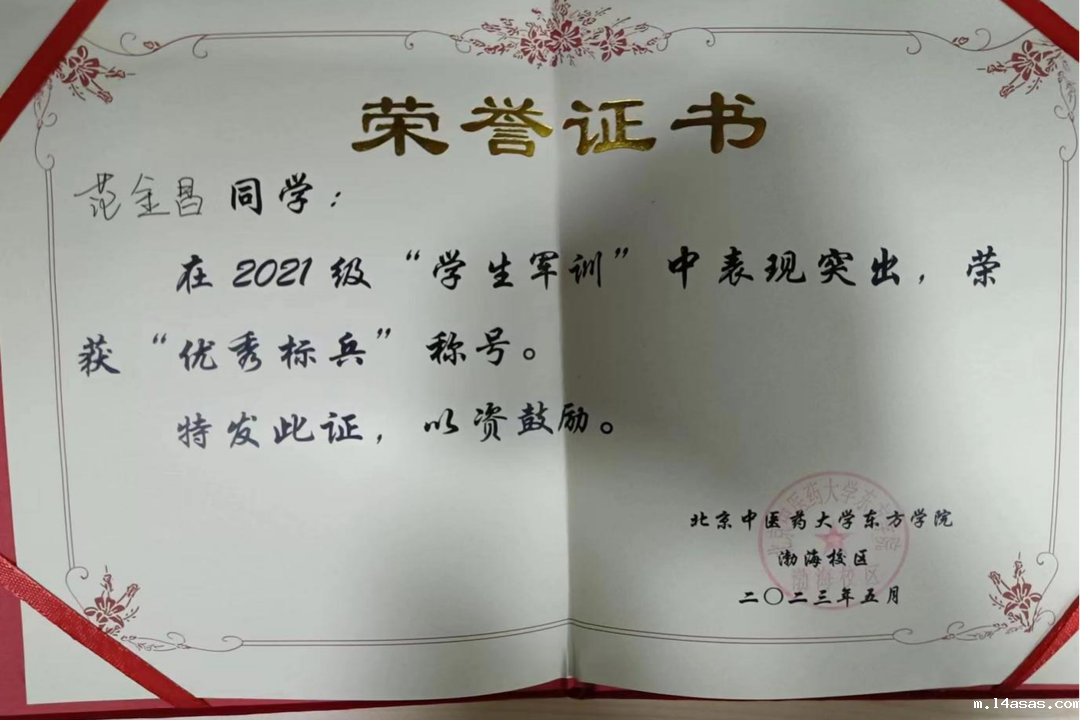 荣誉证书
范金昌 同学：
在2021级“学生军训”中表现突出，荣
获“优秀标兵”称号。
特发此证，以资鼓励。
北京中医药大学东方学院
渤海校区
二〇二三年五月
渤海校区
m.14asas.com